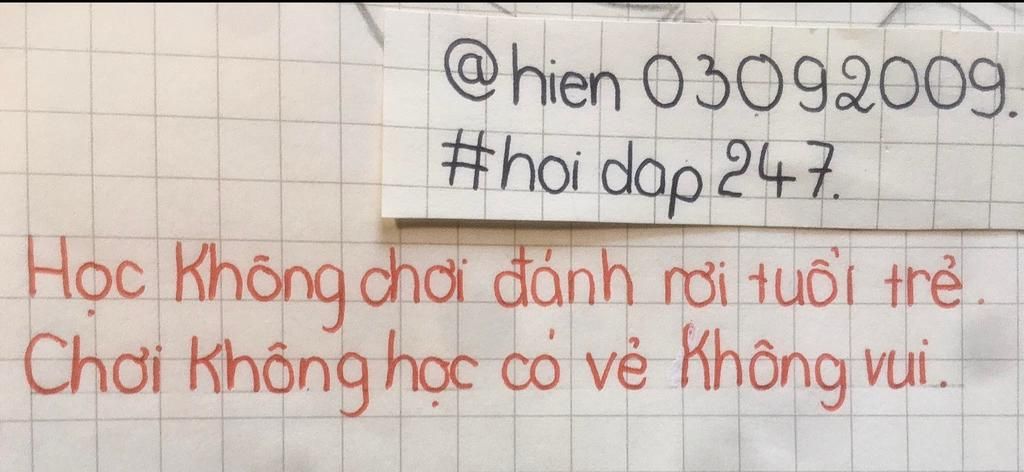 @hien 03092009.
#hoi dap 247.
Học Không chơi đánh rơi tuổi trẻ.
Chơi không học có vẻ Không vui.